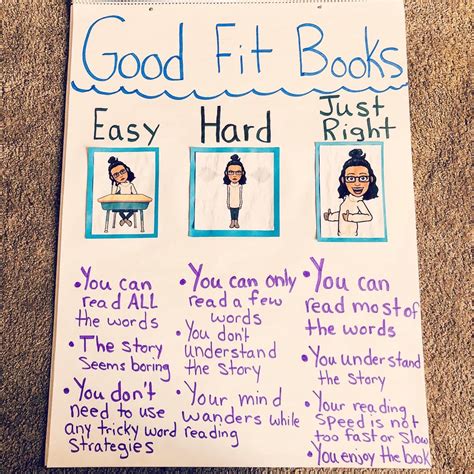 Good Fit Books
Easy
Hard
Just
Right
• You can
read ALL
the words
• The story
seems boring
• You don't
need to use
any tricky word reading
strategies
• You can only
read a few
words
• You don't
understand
the story
• Your mind
wanders while
reading
• You can
read most of
the words
• You understand
the story
• Your reading
speed is not
too fast or slow
• You enjoy the book